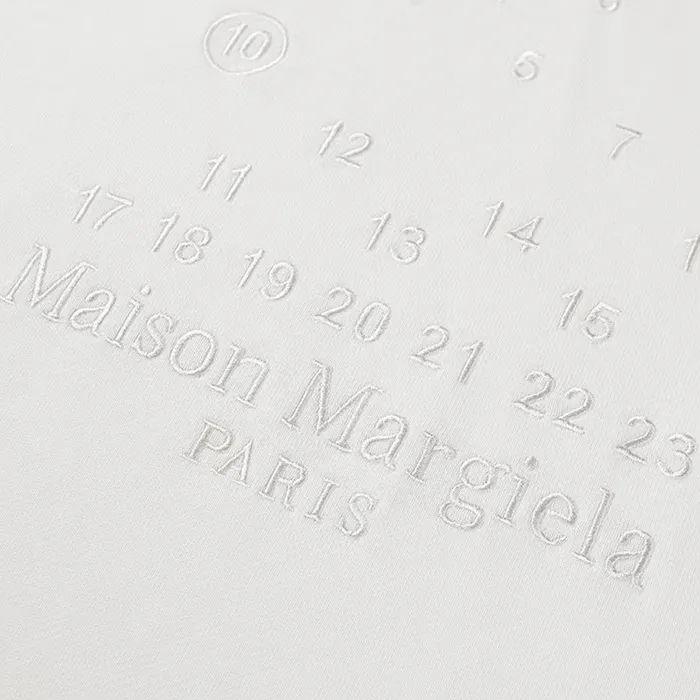 10 5
12 7
11 13 14
17 18 19 20 21 15 22 23
Maison Margiela
PARIS